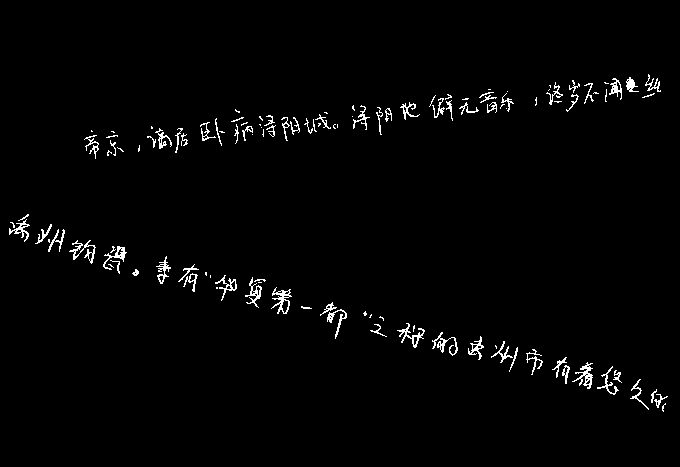 帝京，谪居卧病浔阳城。浔阳地僻无音乐，终岁不闻丝
禹州钧瓷。素有“华夏第一都”之称的禹州市有着悠久的